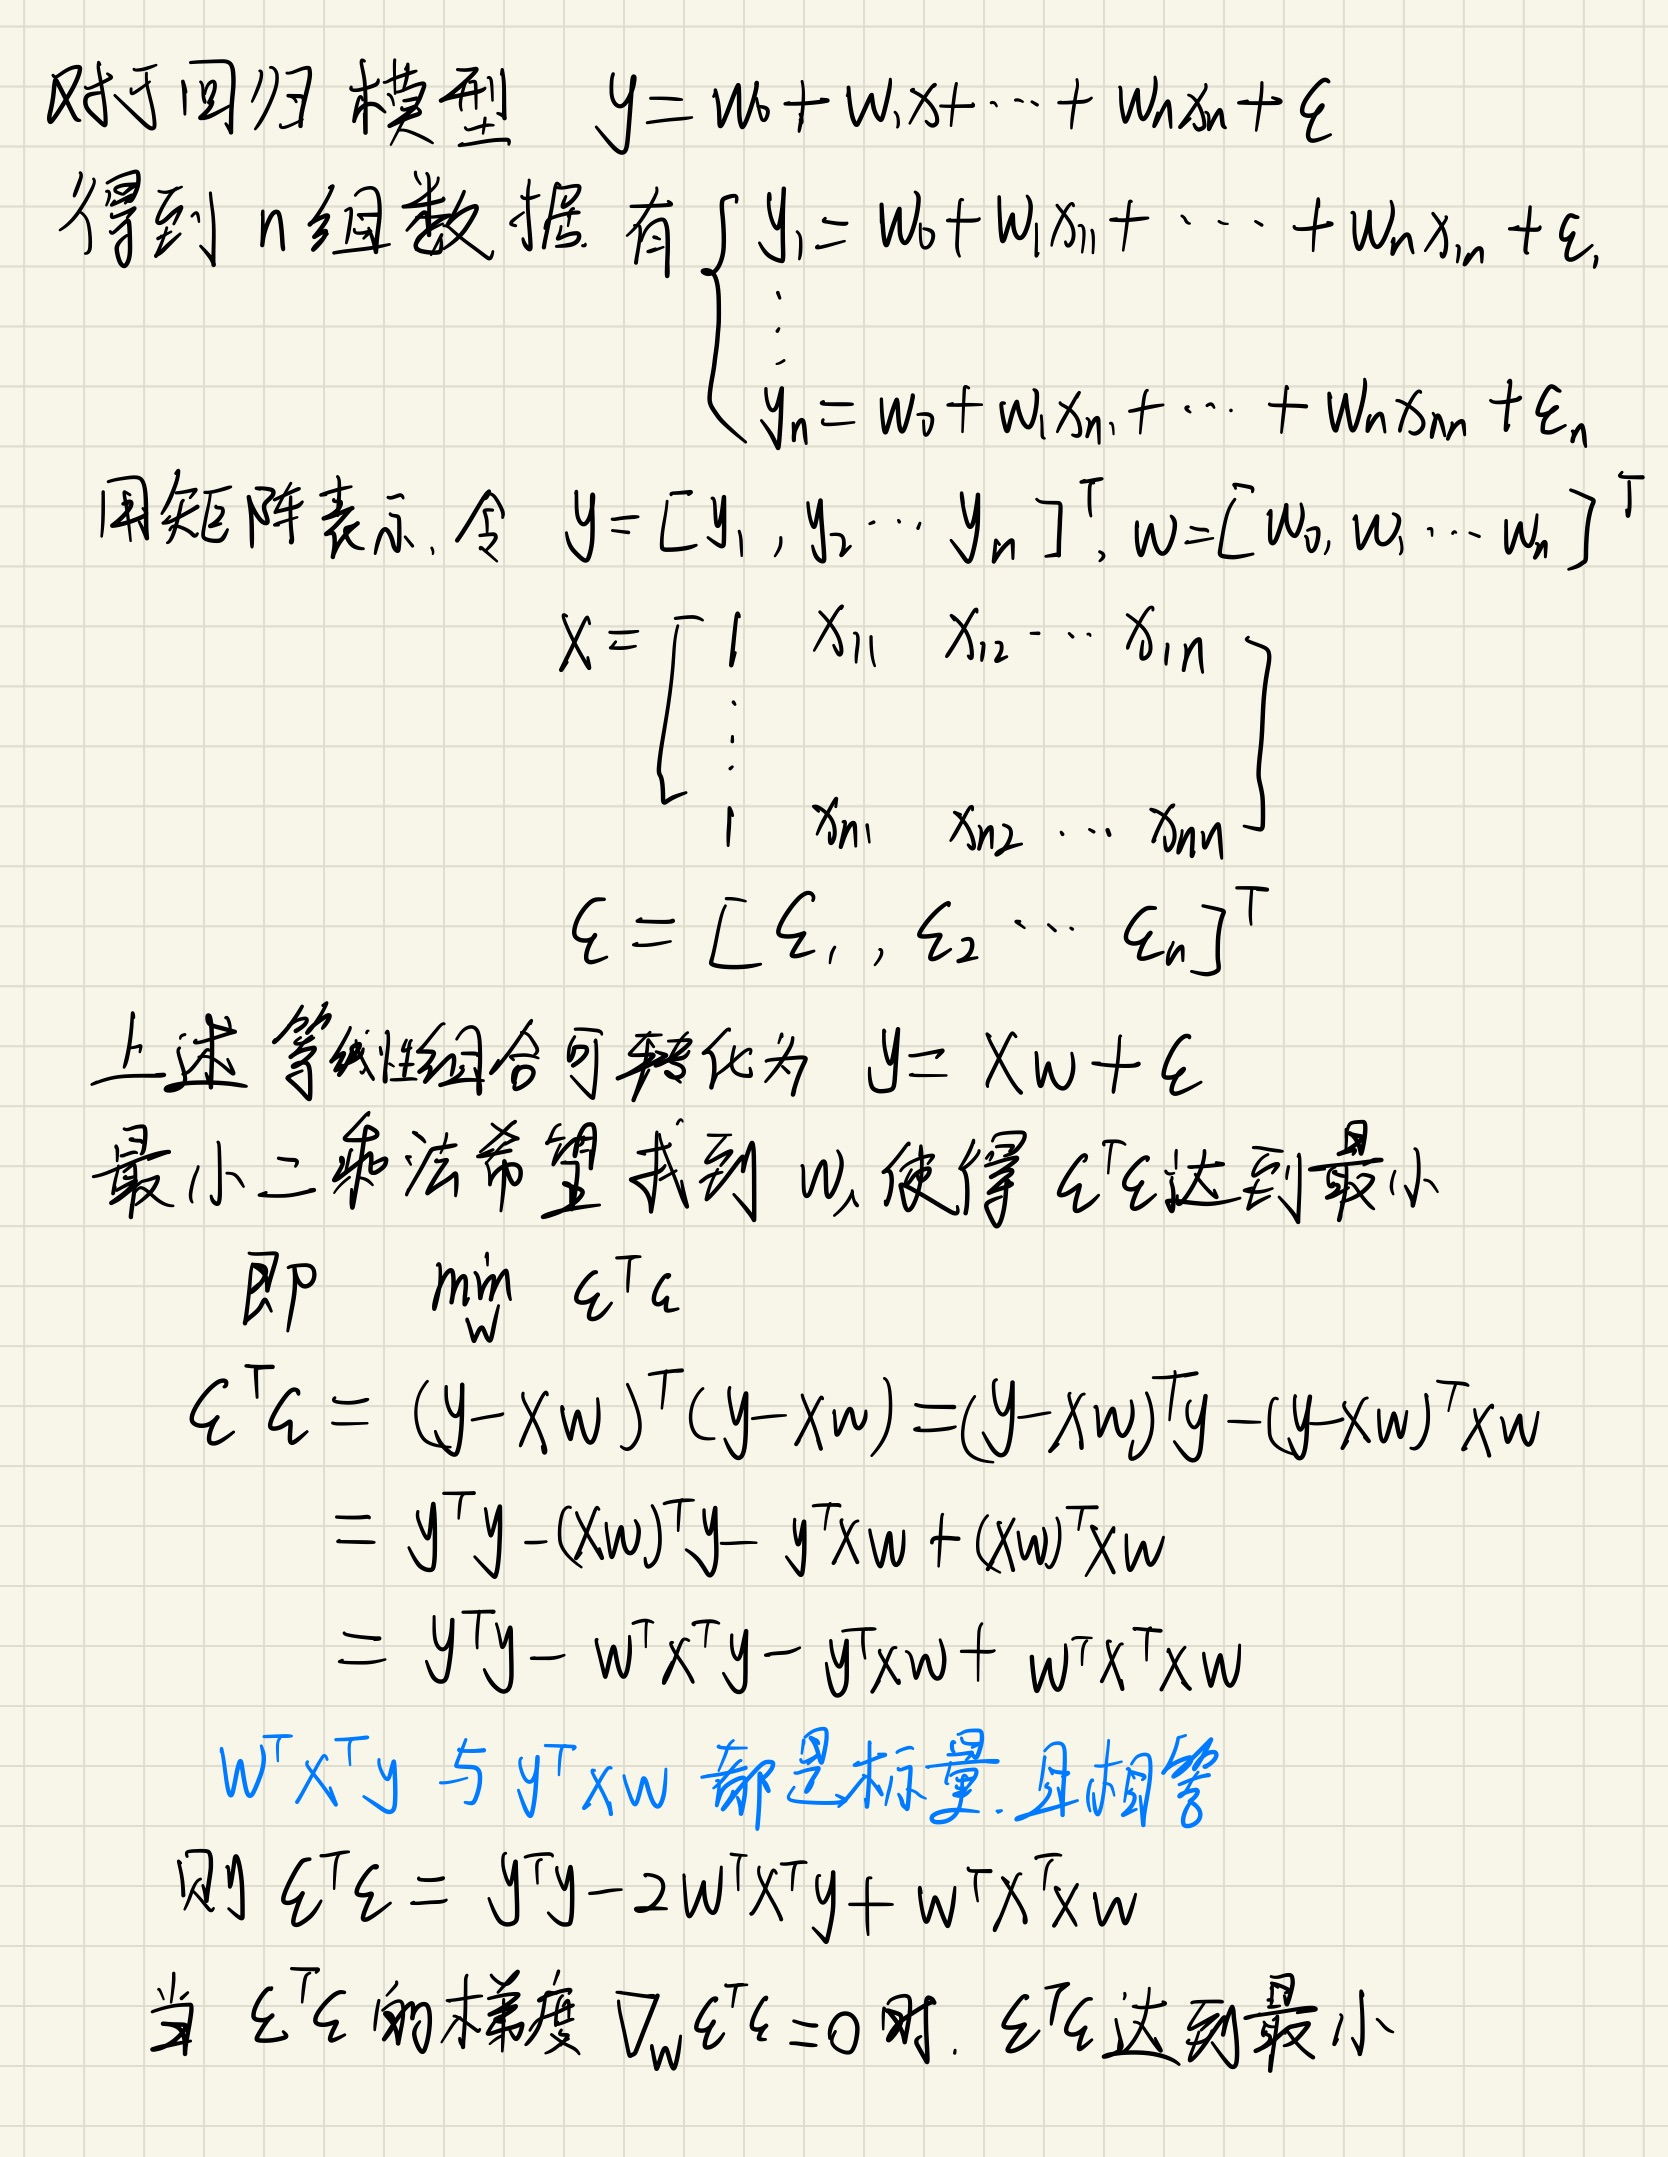 对于回归模型 y = w₀ + w₁x + ··· + wₙxₙ + ε
得到 n 组数据. 有 { y₁ = w₀ + w₁x₁₁ + ····· + wₙx₁ₙ + ε₁
⋮
yₙ = w₀ + w₁xₙ₁ + ··· + wₙxₙₙ + εₙ
用矩阵表示. 令 y = [y₁, y₂ ··· yₙ]ᵀ, w = [w₀, w₁ ··· wₙ]ᵀ
X = [ 1 x₁₁ x₁₂ ··· x₁ₙ
⋮
1 xₙ₁ xₙ₂ ··· xₙₙ ]
ε = [ε₁, ε₂ ··· εₙ]ᵀ
上述等线性组合可转化为 y = Xw + ε
最小二乘法希望找到 w, 使得 εᵀε 达到最小
即 min_w εᵀε
εᵀε = (y - Xw)ᵀ(y - Xw) = (y - Xw)ᵀy - (y - Xw)ᵀXw
= yᵀy - (Xw)ᵀy - yᵀXw + (Xw)ᵀXw
= yᵀy - wᵀXᵀy - yᵀXw + wᵀXᵀXw
wᵀXᵀy 与 yᵀXw 都是标量. 且相等
则 εᵀε = yᵀy - 2wᵀXᵀy + wᵀXᵀXw
当 εᵀε 的梯度 ∇_w εᵀε = 0 时. εᵀε 达到最小